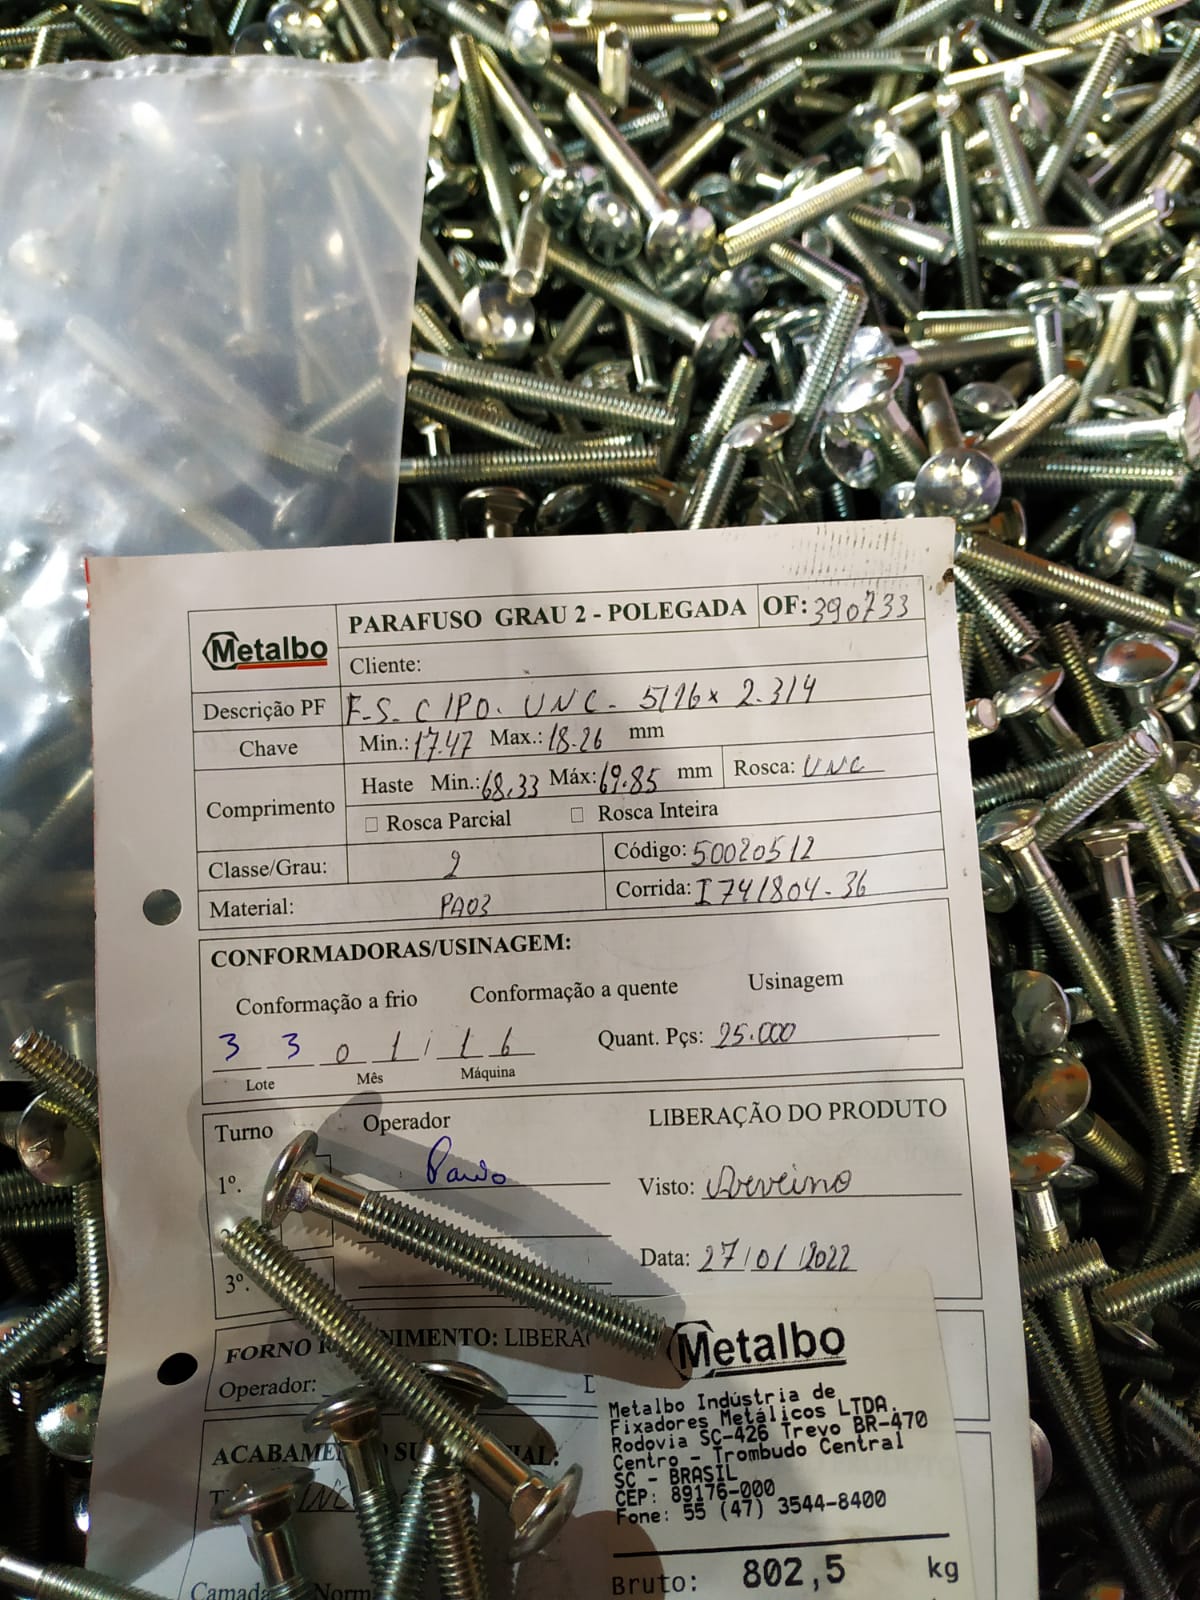 Metalbo
PARAFUSO GRAU 2 - POLEGADA OF: 390733
Cliente:
Descrição PF F.S. C IPO. UNC. 5/16 x 2.3/4
Chave Min.: 17.47 Max.: 18.26 mm
Comprimento Haste Min.: 68,33 Máx: 69.85 mm Rosca: UNC
☐ Rosca Parcial ☐ Rosca Inteira
Classe/Grau: 2 Código: 50020512
Material: PA03 Corrida: I741804-36
CONFORMADORAS/USINAGEM:
Conformação a frio Conformação a quente Usinagem
3 3 0 1 / 1 6 Quant. Pçs: 25.000
Lote Mês Máquina
Turno Operador LIBERAÇÃO DO PRODUTO
1º. Visto:
Data: 27/01/2022
3º.
FORNO NIMENTO: LIBERA
Operador:
ACABAME SU IAL:
Camada Norm
Metalbo
Metalbo Indústria de
Fixadores Metálicos LTDA.
Rodovia SC-426 Trevo BR-470
Centro - Trombudo Central
SC - BRASIL
CEP: 89176-000
Fone: 55 (47) 3544-8400
Bruto: 802,5 kg